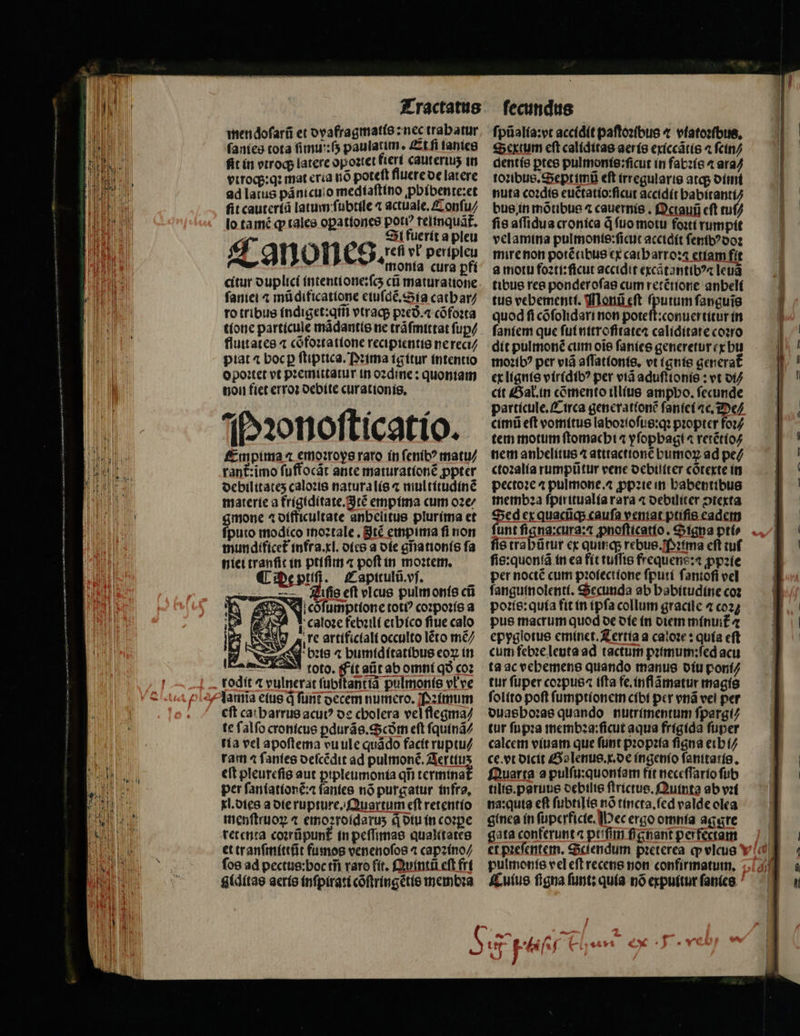 Tractatus
mendosarũ et dyafragmatis : nec trahatur
sanies tota simul: sʒ paulatim. Et si sanies
sit in vtroqʒ latere oportet fieri cauteriuʒ in
vtroqʒ: qꝛ mat eria nõ potest fluere de latere
ad latus pãniculo mediastino ꝓhibente: et
fit cauteriũ latum subtile ⁊ actuale. Consu⸗
lo tamẽ ꝙ tales opationes potiꝰ relinquãt̃.
Canones. Si fuerit a pleu
resi vł peripleu
monia cura pfi
citur duplici intentione: scʒ cũ maturatione
saniei ⁊ mũdificatione eiusdẽ. Sia cathar⸗
ro tribus indiget: qm̃ vtraqʒ pred. ⁊ cõforta
tione particule mãdantis ne trãsmittat supͬ⸗
fluitates ⁊ cõfortatione recipientis ne reci⸗
piat ⁊ hoc p stiptica. Prima igitur intentio
oportet vt premittatur in ordine : quoniam
non fiet error debite curationis.
Pronosticatio.
Empima ⁊ emoroys raro in senibꝰ matu⸗
rant̃: imo suffocãt ante maturationẽ ꝓpter
debilitateʒ caloris naturalis ⁊ multitudinẽ
materie a frigiditate. Itẽ empima cum ore⸗
gmone ⁊ difficultate anhelitus plurima et
sputo modico mortale. Itẽ empima si non
mundificet̃ infra .xl. dies a die gñationis sa
niei transit in ptisim ⁊ post in mortem.
¶ De ptisi. Capitulũ .vj.
Tisis est vlcus pulmonis cũ
cõsumptione totiꝰ corporis a
calore febrili ethico siue calo
re artificiali occulto lẽto mẽ⸗
bris ⁊ humiditatibus eoꝝ in
toto. Fit aũt ab omni qđ cor
rodit ⁊ vulnerat substantiã pulmonis vł ve
lamina eius q̃ sunt decem numero. Primum
est catharrus acutꝰ de cholera vel flegma⸗
te salso cronicus pdurãs. Scd̃m est squinã⸗
tia vel apostema vuule quãdo facit ruptu⸗
ram ⁊ sanies descẽdit ad pulmonẽ. Tertiuʒ
est pleuresis aut pipleumonia qñ terminat̃
per saniationẽ: ⁊ sanies nõ purgatur infra.
xl. dies a die rupture. Quartum est retentio
menstruoꝝ ⁊ emorroidaruʒ q̃ diu in corpe
retenta corrũpunt̃ in pessimas qualitates
et transmittũt fumos venenosos ⁊ caprino⸗
sos ad pectus: hoc tñ raro fit. Quintũ est fri
giditas aeris inspirati cõstringẽtis membra
secundus
spũalia: vt accidit pastoribus ⁊ viatoribus.
Sextum est caliditas aeris exiccãtis ⁊ scin⸗
dentis ptes pulmonis: sicut in fabris ⁊ ara⸗
toribus. Septimũ est irregularis atqʒ dimi
nuta cordis euẽtatio: sicut accidit habitanti⸗
bus in mõtibus ⁊ cauernis. Octauũ est tus⸗
sis assidua cronica q̃ suo motu forti rumpit
velamina pulmonis: sicut accidit senibꝰ dor
mire non potẽtibus ex catharro: ⁊ etiam fit
a motu forti: sicut accidit excãtantibꝰ ⁊ leuã
tibus res ponderosas cum retẽtione anheli
tus vehementi. Nonũ est sputum sanguis
quod si cõsolidari non potest: conuertitur in
saniem que sui nitrositate ⁊ caliditate corro
dit pulmonẽ cum oĩs sanies generetur ex hu
moribꝰ per viã assationis, vt ignis generat̃
ex lignis viridibꝰ per viã adustionis : vt di⸗
cit Gal. in cõmento illius ampho. secunde
particule. Circa generationẽ saniei ⁊c. De⸗
cimũ est vomitus laboriosus: qꝛ propter for⸗
tem motum stomachi ⁊ ysophagi ⁊ retẽtio⸗
nem anhelitus ⁊ attractionẽ humoꝝ ad pe⸗
ctoralia rumpũtur vene debiliter cõtexte in
pectore ⁊ pulmone. ⁊ ꝓprie in habentibus
membra spiritualia rara ⁊ debiliter ꝯtexta
Sed ex quacũqʒ causa veniat ptisis eadem
sunt signa: cura: ⁊ ꝓnosticatio. Signa pti⸗
sis trahũtur ex quinqʒ rebus. Prima est tus
sis: quoniã in ea fit tussis frequens: ⁊ ꝓprie
per noctẽ cum proiectione sputi saniosi vel
sanguinolenti. Secunda ab habitudine cor
poris: quia fit in ipsa collum gracile ⁊ corꝫ
pus macrum quod de die in diem minuit̃ ⁊
epyglotus eminet. Tertia a calore : quia est
cum febre lenta ad tactum primum: sed acu
ta ac vehemens quando manus diu poni⸗
tur super corpus ⁊ ista fe. inflãmatur magis
solito post sumptionem cibi per vnã vel per
duas horas quando nutrimentum spargi⸗
tur supra membra: sicut aqua frigida super
calcem viuam que sunt propria signa ethi⸗
ce. vt dicit Galenus .x. de ingenio sanitatis.
Quarta a pulsu: quoniam fit necessario sub
tilis. paruus debilis strictus. Quinta ab vri
na: quia est subtilis nõ tincta, sed valde olea
ginea in superficie. Hec ergo omnia aggre
gata conferunt ⁊ ptisim signant perfectam
et presentem. Sciendum preterea ꝙ vlcus
pulmonis vel est recens non confirmatum,
Cuius signa sunt: quia nõ expuitur sanies